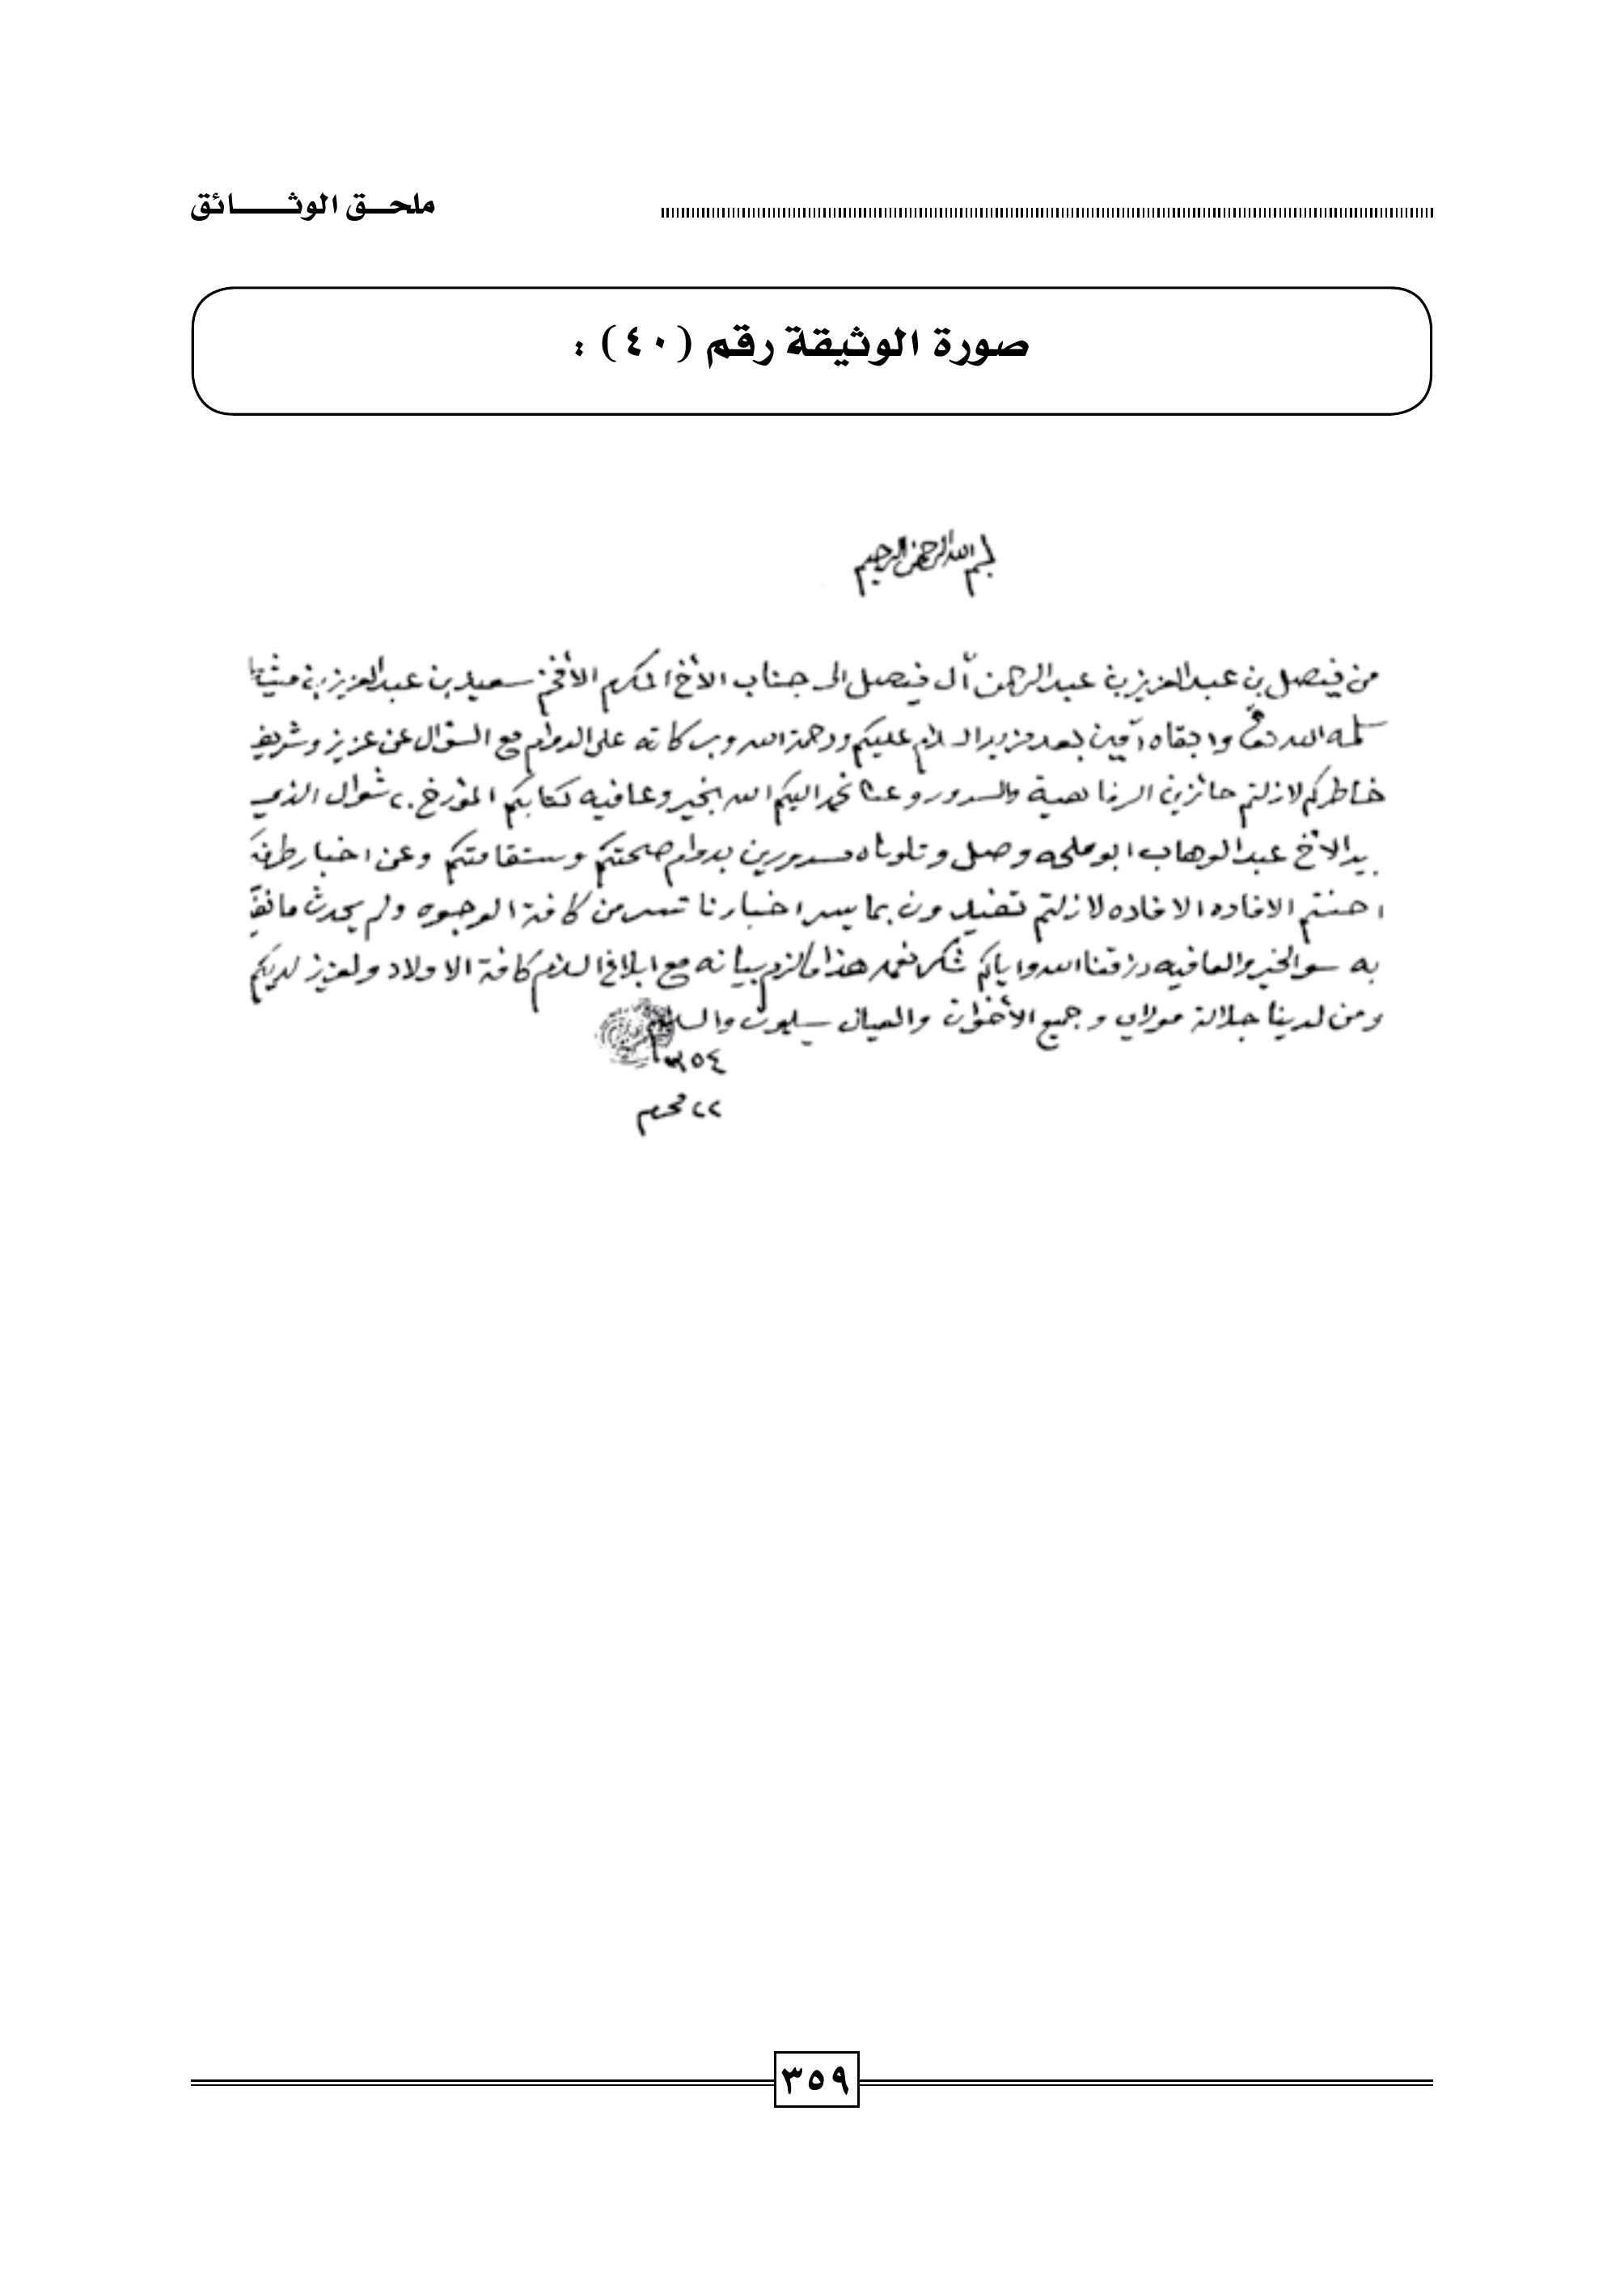 ملحق الوثائق
صورة الوثيقة رقم (٤٠) :
بسم الله الرحمن الرحيم
من فيصل بن عبد العزيز بن عبد الرحمن آل فيصل الى جناب الأخ المكرم الأفخم سعيد بن عبد العزيز بن مشيط
سلمه الله تعالى وابقاه آمين بعد مزيد السلام عليكم ورحمة الله وبركاته على الدوام مع السؤال عن عزيز وشريف
خاطركم لازلتم حائزين الرفاهية والسرور وعنا نحمد اليكم الله بخير وعافيه كتابكم المؤرخ ٢٠ شوال الذي
بيد الأخ عبد الوهاب ابو ملحه وصل وتلوناه مسرورين بدوام صحتكم وستقامتكم وعن اخبار طرفكم
احسنتم الافاده الافاده لازلتم تفيدون بما يسر اخبارنا تسر من كافة الوجوه ولم يحدث ما نفيدكم
به سوا الخير والعافيه رزقنا الله واياكم شكر نعمه هذا مالزم بيانه مع ابلاغ السلام كافة الاولاد ولعزيز لديكم
ومن لدينا جلالة مولاي وجميع الأخوان والعيال يسلمون والسلام
١٣٥٤
٢٢ محرم
٣٥٩